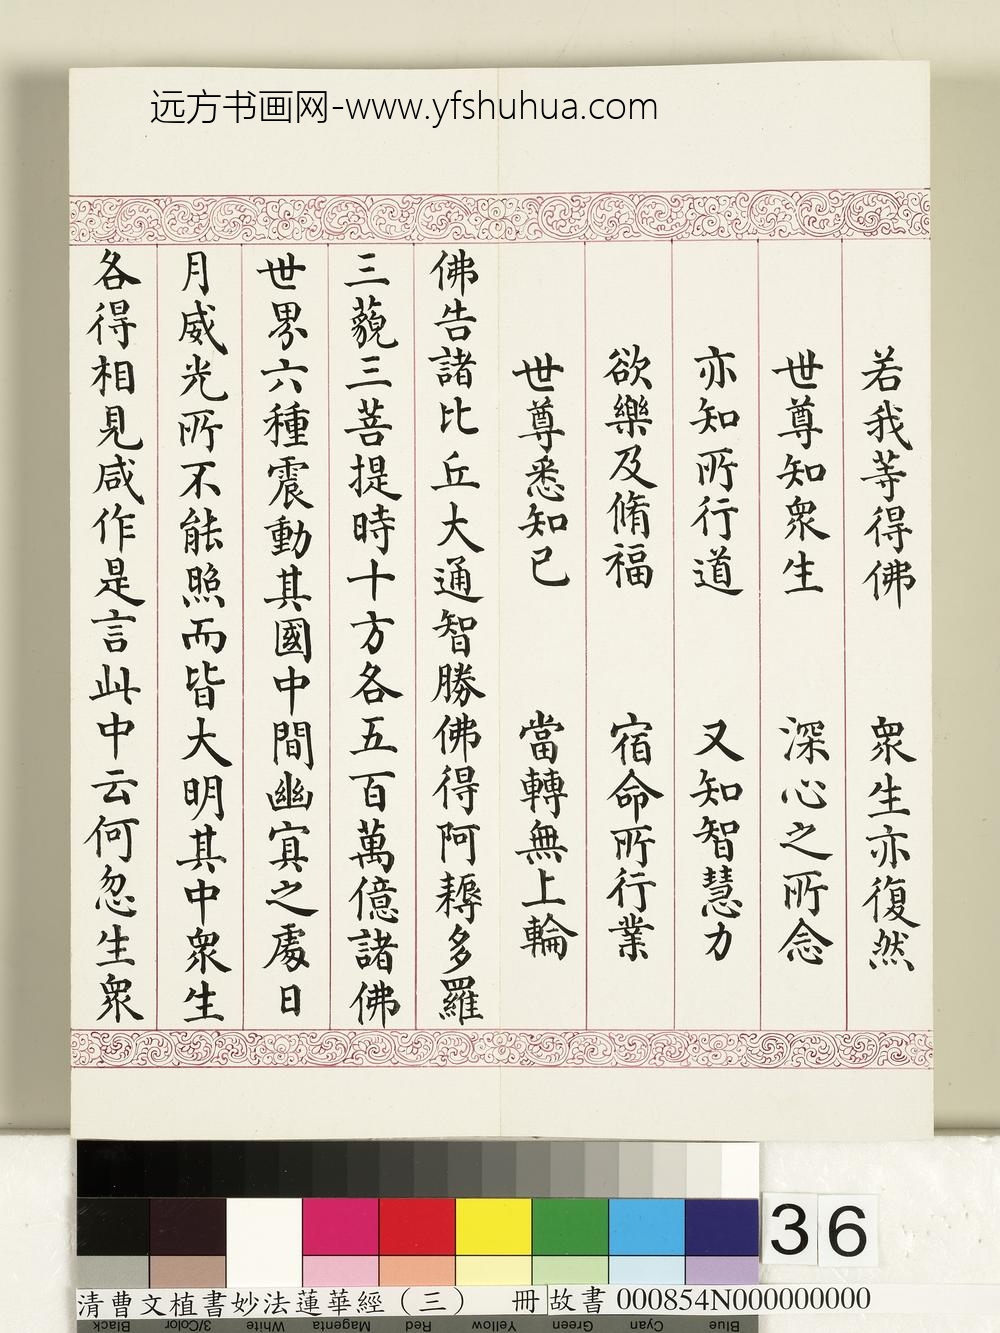 远方书画网-www.yfshuhua.com
若我等得佛 衆生亦復然
世尊知衆生 深心之所念
亦知所行道 又知智慧力
欲樂及脩福 宿命所行業
世尊悉知已 當轉無上輪
佛告諸比丘大通智勝佛得阿耨多羅
三藐三菩提時十方各五百萬億諸佛
世界六種震動其國中間幽冥之處日
月威光所不能照而皆大明其中衆生
各得相見咸作是言此中云何忽生衆
36
清曹文植書妙法蓮華經(三) 冊 故書 000854N000000000
Black 3/Color White Magenta Red Yellow Green Cyan Blue